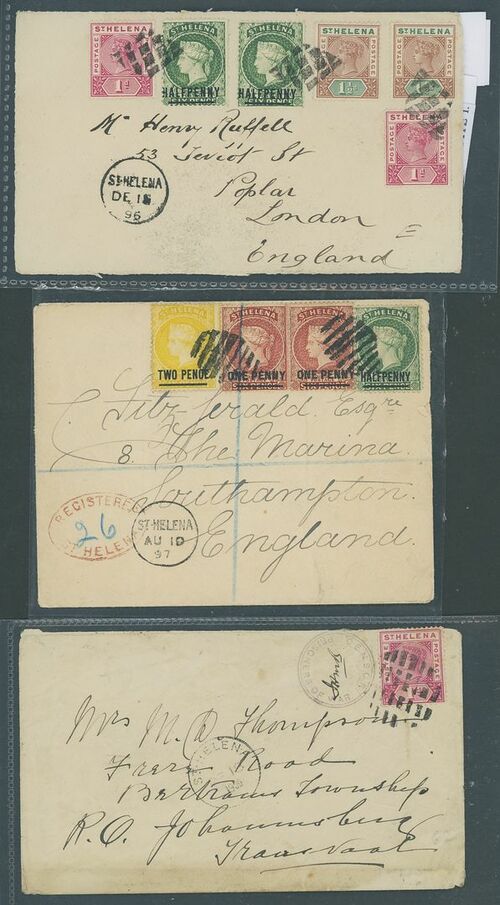 ST HELENA
POSTAGE
POSTAGE
1d
HALFPENNY
SIX PENCE
HALFPENNY
SIX PENCE
ST HELENA
POSTAGE
POSTAGE
1½d
ST HELENA
POSTAGE
POSTAGE
POSTAGE
POSTAGE
1d
Mr Henry Ruffell
53 St
Poplar
London
England
ST HELENA
DE 18
96
ST HELENA
TWO PENCE
ST HELENA
ONE PENNY
ST HELENA
ONE PENNY
ST HELENA
HALFPENNY
Fitz-Gerald. Esqre
8. The Marina.
Southampton.
England.
REGISTERED
26
ST HELENA
ST HELENA
AU 10
97
ST HELENA
POSTAGE
Mrs M. D. Thompson
Frere Road
Bertrams Township
P.O. Johannesburg
Transvaal
ST HELENA